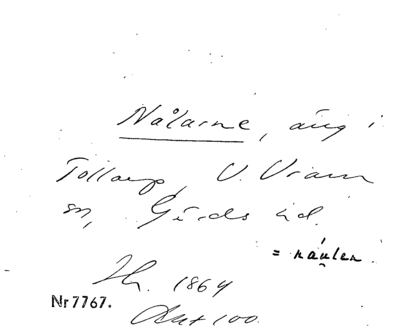 Nålarne, äng i
Tollarp, V. Vram
sn, Gärds hd.
= náulen.
Th. 1864
Nr 7767.
Akt 100.